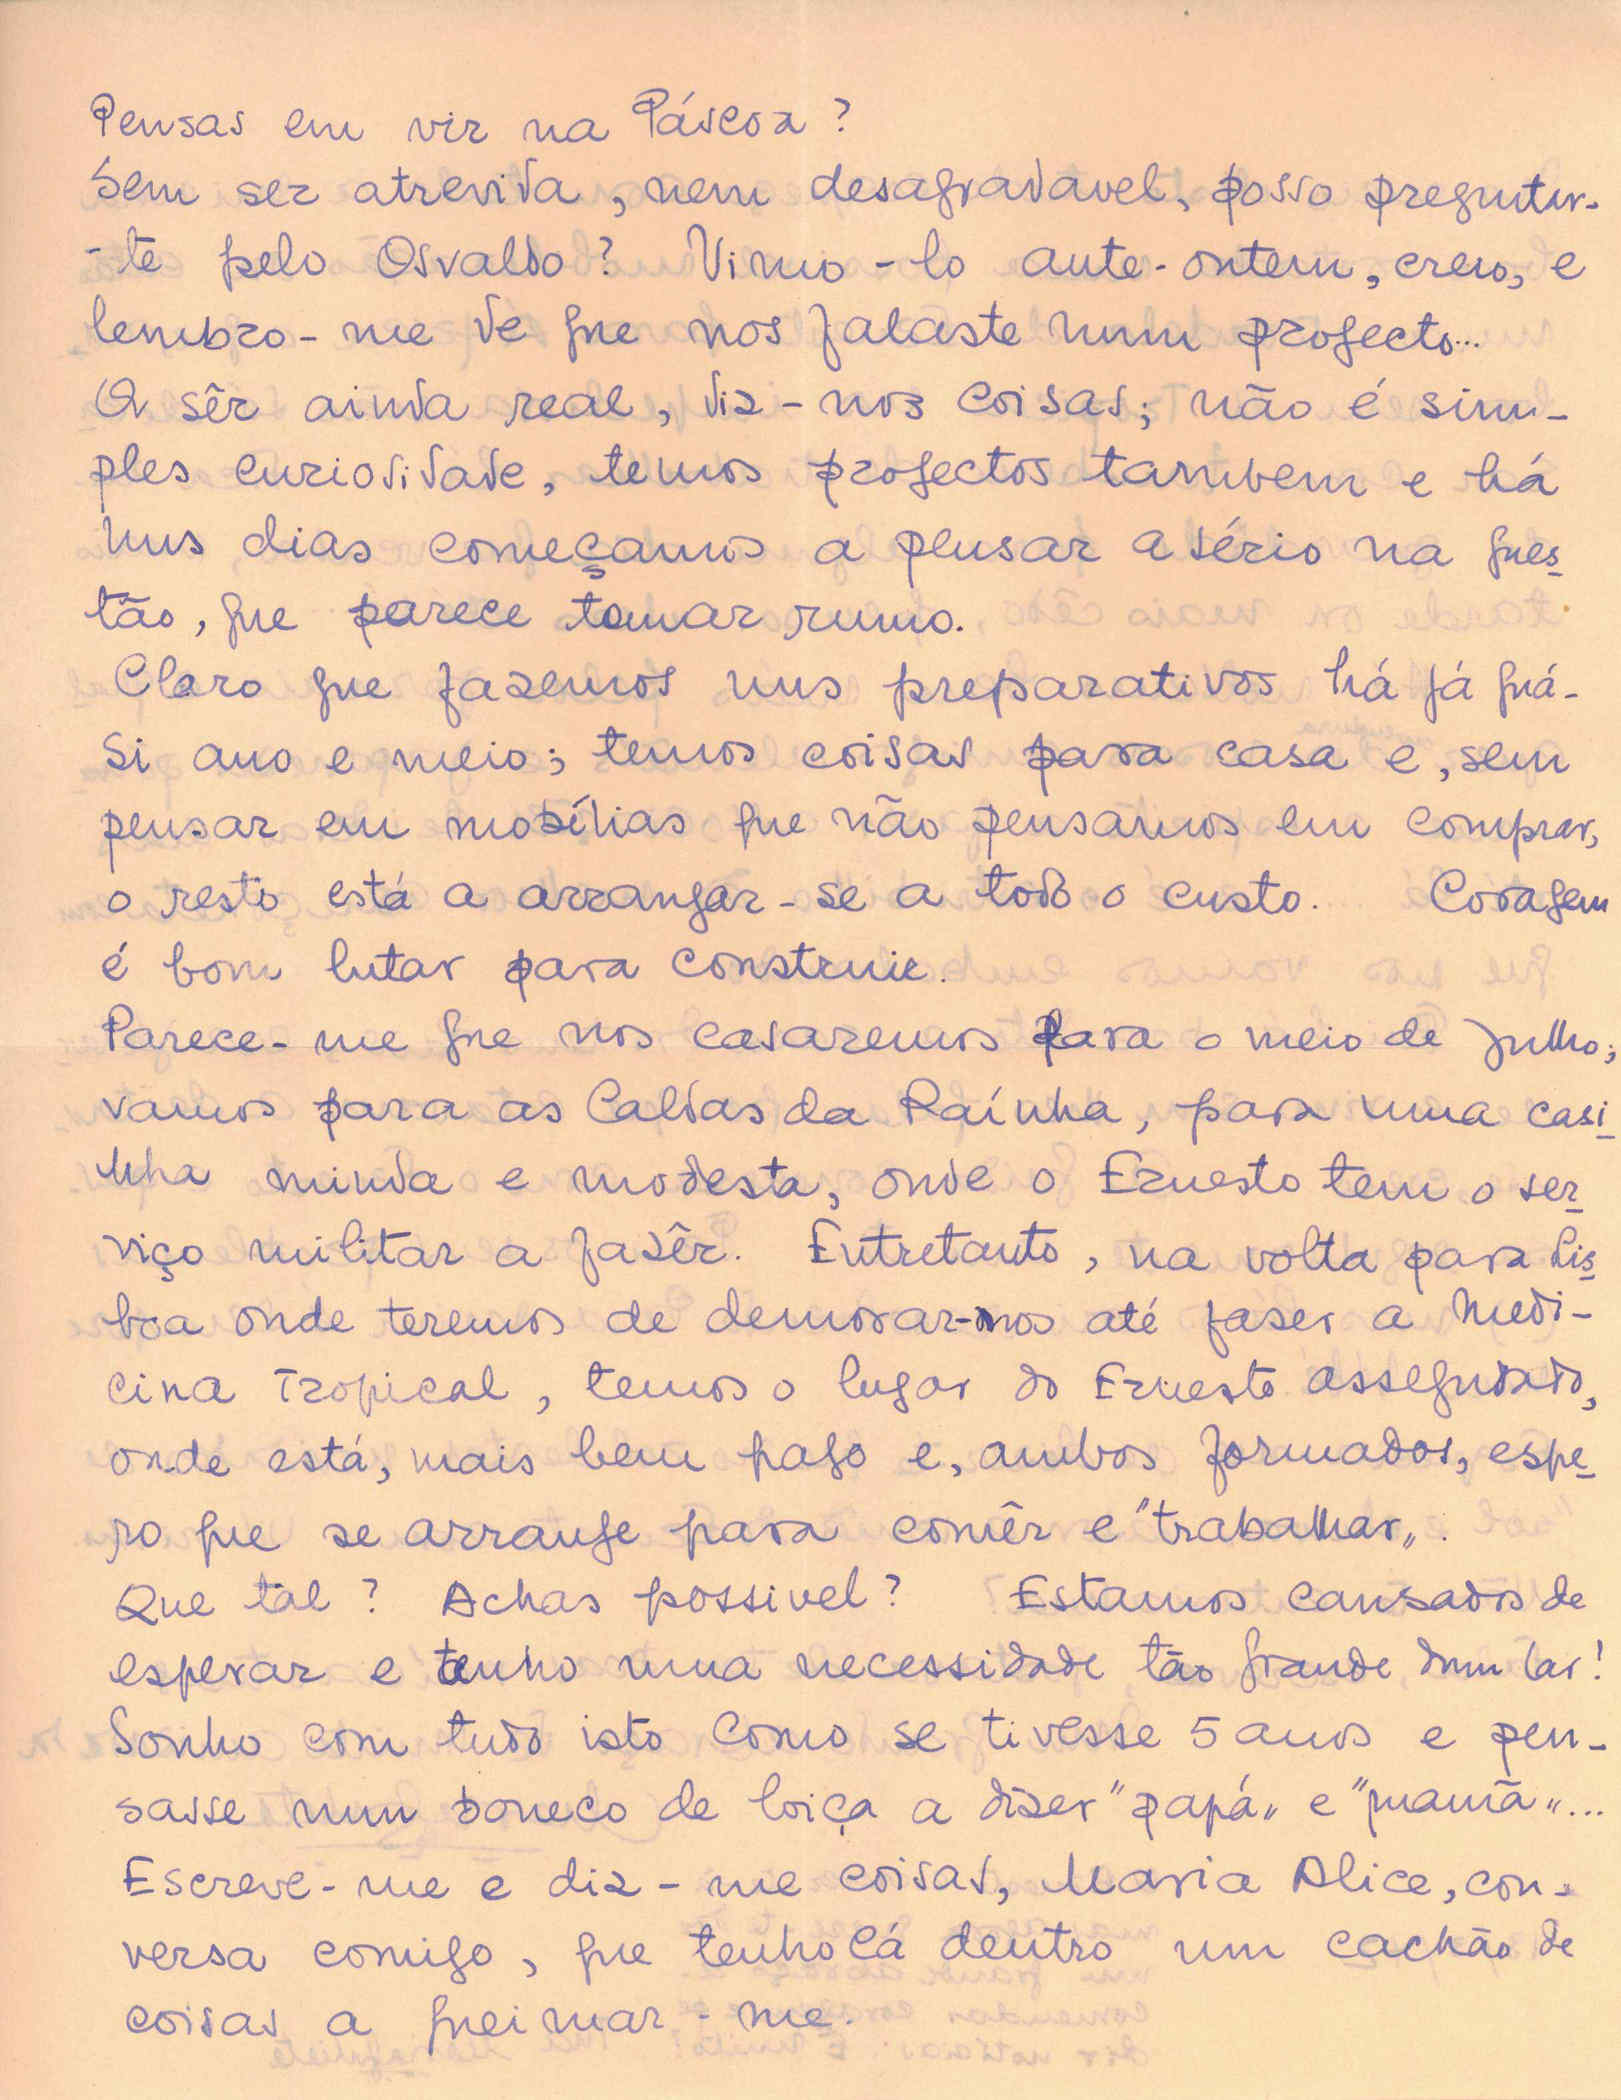 Pensas em vir na Páscoa?
Sem ser atrevida, nem desagradavel, posso preguntar-
-te pelo Osvaldo? Vimo-lo ante-ontem, creio, e
lembro-me de que nos falaste num projecto...
A sêr ainda real, diz-nos coisas; não é sim-
ples curiosidade, temos projectos tambem e há
uns dias começamos a pensar a sério na ques-
tão, que parece tomar rumo.
Claro que fazemos uns preparativos há já quá-
si ano e meio; temos coisas para casa e, sem
pensar em mobílias que não pensamos em comprar,
o resto está a arranjar-se a todo o custo. Coragem
é bom lutar para construir.
Parece-me que nos casaremos para o meio de Julho;
vamos para as Caldas da Raínha, para uma casi-
nha minda e modesta, onde o Ernesto tem o ser-
viço militar a fasêr. Entretanto, na volta para Lis-
boa onde teremos de demorar-nos até faser a Medi-
cina Tropical, temos o lugar do Ernesto assegurado,
onde está, mais bem pago e, ambos formados, espe-
ro que se arranje para comêr e "trabalhar".
Que tal? Achas possivel? Estamos cansados de
esperar e tenho uma necessidade tão grande dum lar!
Sonho com tudo isto como se tivesse 5 anos e pen-
sasse num boneco de loiça a diser "papá" e "mamã"...
Escreve-me e diz-me coisas, Maria Alice, con-
versa comigo, que tenho cá dentro um cachão de
coisas a queimar-me.